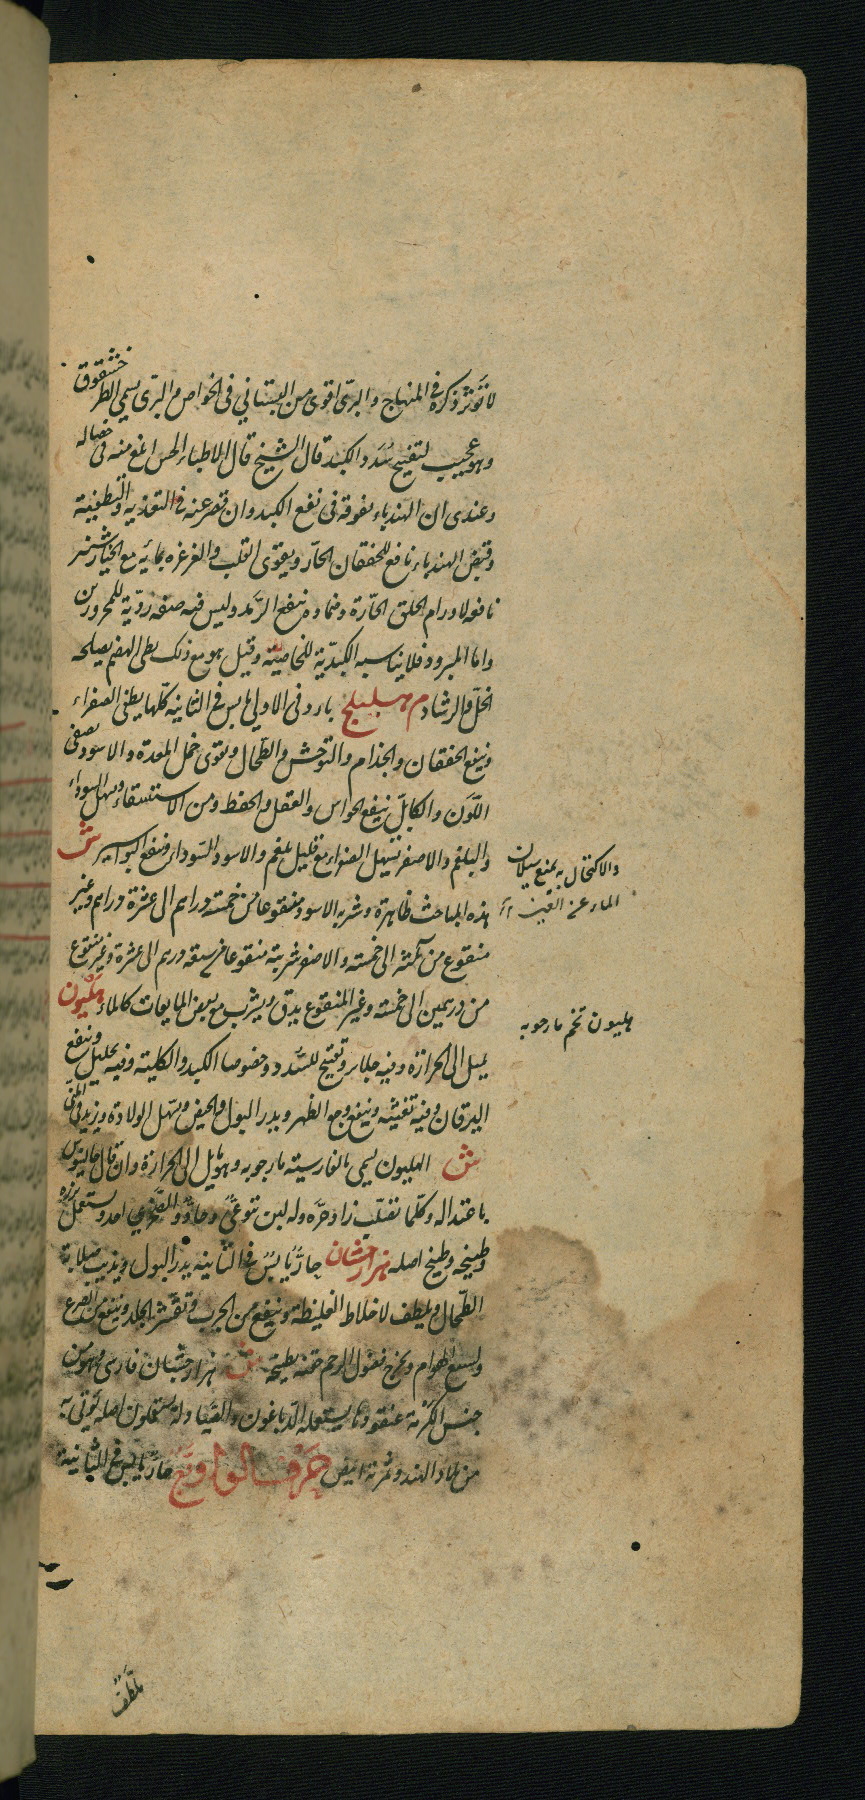 لا تؤثر ذكره فى المنهاج والبرّى اقوى من البستاني فى الخواص م البرّى يسمى الطرخشقوق
وهو عجيب لتفتيح سُدد الكبد قال الشيخ قال الاطباء الخس انفع منه فى خصاله
وعندى ان الهندباء يفوقه فى نفع الكبد وان قصر عنه فى التغذيه والتطفية
وقيل الهندباء نافع للخفقان الحار ويقوى القلب والغرغره بمائه مع الخيارشنبر
نافعه لاورام الحلق الحارة وضماده ينفع الرمد وليس فيه صفه رديّة للمحرورين
واما المبرود فلا يناسبه الكبديّة للخاصيته وقيل هو مع ذلك بطى الهضم يصلحه
الخل والرشاد م هليلج بارد فى الاولى يابس فى الثانيه كلها يطفى الصفراء
وينفع الخفقان والجذام والتوحش والطحال ويقوى خمل المعدة والاسود يصفى
اللون والكابلى ينفع الحواس والعقل والحفظ ومن الاستسقاء ويسهل السوداء
والبلغم والاصفر يسهل الصفراء مع قليل بلغم والاسود السوداء وينفع البواسير ش
هذه المباحث ظاهرة وشربه الاسود منقوعا من خمسة دراهم الى عشرة دراهم وغير
منقوع من ثلثة الى خمسته والاصفر شربته منقوعا من سبعة درهم الى عشرة وغير منقوع
من درهمين الى خمسته وغير المنقوع يدق ويشرب مع بعض المايعات كالماء هليون
يميل الى الحرارة وفيه جلاء وتفتيح للسدد وخصوصا الكبد والكلية وفيه تحليل وينفع
اليرقان وفيه تغثيه وينفع وجع الظهر ويدر البول والحيض ويسهل الولادة ويزيد فى المنى
ش الهليون يسمى بالفارسيته مارجوبه وهو يميل الى الحرارة وان قال جالينوس
باعتداله وكلما تصلّب زاد حرّه وله لبن يتوعى وحاد والصخرى احد ويستعمل بزره
وطبيخه وطبيخ اصله هزارجشان حار يابس فى الثانيه يدر البول ويذيب صلابة
الطحال ويلطف الاخلاط الغليظة وينفع من الجرب وتقشر الجلد وينفع من الصرع
ولسع الهوام ويخرج فضول الرحم حقنه بطبيخه ش هزارجشان فارسى وهو من
جنس الكرمة عنقوده يستعمله الدباغون والصيادلة يستعملون اصله يؤتى به
من بلاد الهند وثمرته ابيض حرف الواو وج حار يابس فى الثانية
والاكتحال به يمنع سيلان
الماء عن العين
هليون تخم مارجوبه
يلطف